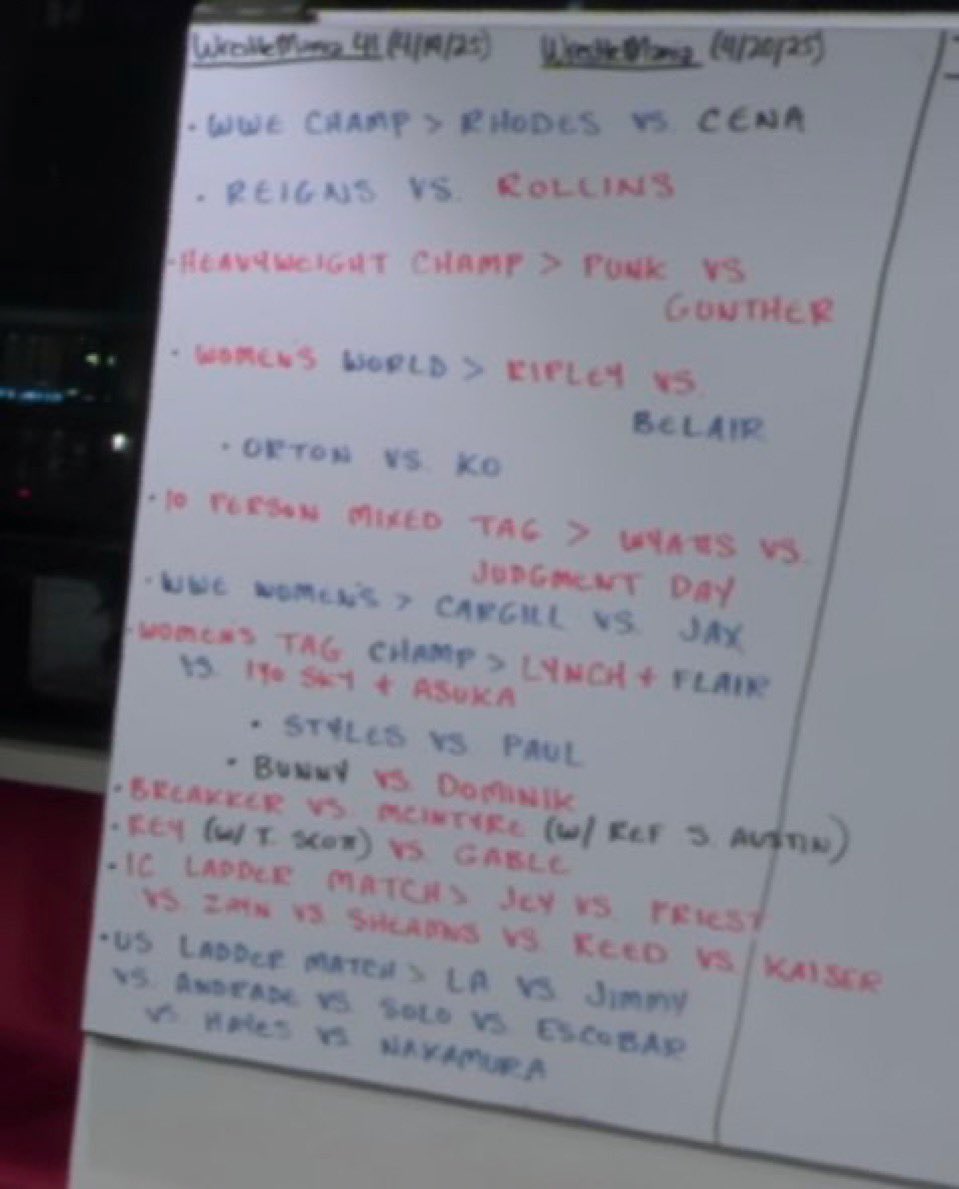 WrestleMania 41 (4/19/25) WrestleMania (4/20/25)
· WWE CHAMP > RHODES VS. CENA
· REIGNS VS. ROLLINS
· HEAVYWEIGHT CHAMP > PUNK VS
GUNTHER
· WOMEN'S WORLD > RIPLEY VS.
BELAIR
· ORTON VS. KO
· 10 PERSON MIXED TAG > WYATTS VS.
JUDGMENT DAY
· WWE WOMEN'S > CARGILL VS. JAX
· WOMEN'S TAG CHAMP > LYNCH + FLAIR
VS. IYO SKY + ASUKA
· STYLES VS PAUL
· BUNNY VS. DOMINIK
· BREAKKER VS. MCINTYRE (W/ REF S. AUSTIN)
· REY (W/ T. SCOTT) VS. GABLE
· IC LADDER MATCH > JEY VS. PRIEST
VS. ZAYN VS. SHEAMUS VS REED VS. KAISER
· US LADDER MATCH > LA VS JIMMY
VS. ANDRADE VS. SOLO VS. ESCOBAR
VS HAYES VS NAKAMURA